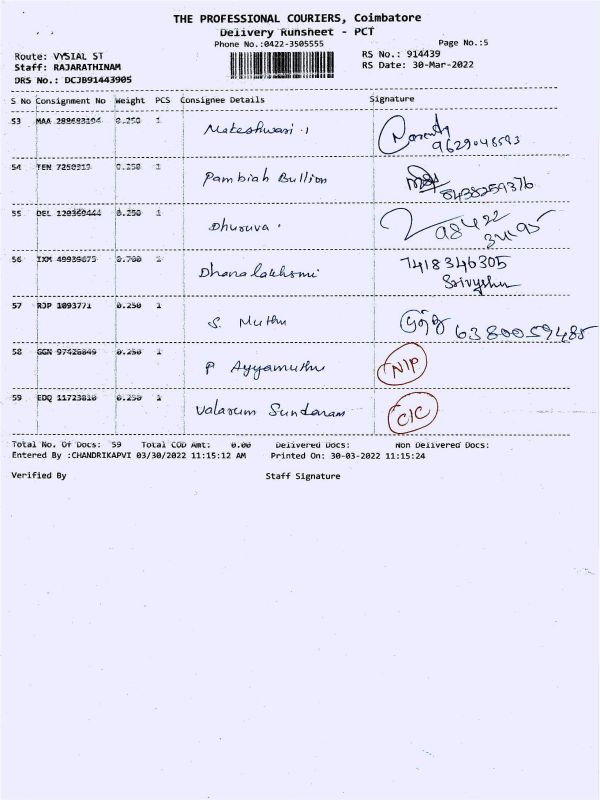 THE PROFESSIONAL COURIERS, Coimbatore
Delivery Runsheet - PCT
Phone No.:0422-3505555 Page No.:5
Route: VYSIAL ST RS No.: 914439
Staff: RAJARATHINAM RS Date: 30-Mar-2022
DRS No.: DCJB91443905
S No Consignment No Weight PCS Consignee Details Signature
53 MAA 288683194 0.250 1 Makeshwari .1
9629048593
54 TEN 7250319 0.250 1 Pambiah Bullion
8438259376
55 DEL 120369444 0.250 1 Dhuruva .
98422
56 IXM 49939675 0.700 1 Dhanalakhsmi 7418346305
57 RJP 1093771 0.250 1 S. Muthu 6380059485
58 GGN 97426849 0.250 1 P Ayyamuthu N/P
59 EDQ 11723810 0.250 1 Valarum Sundaram C/C
Total No. Of Docs: 59 Total COD Amt: 0.00 Delivered Docs: Non Delivered Docs:
Entered By :CHANDRIKAPVI 03/30/2022 11:15:12 AM Printed On: 30-03-2022 11:15:24
Verified By Staff Signature